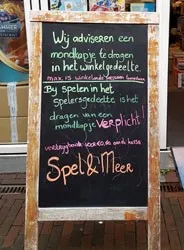 Wij adviseren een
mondkapje te dragen
in het winkelgedeelte
max. 15 winkelende personen
By spelen in het
spelersgedeelte is het
dragen van een
mondkapje verplicht!
verkrijgbaar voor €0,50 aan de kassa
Spel & Meer